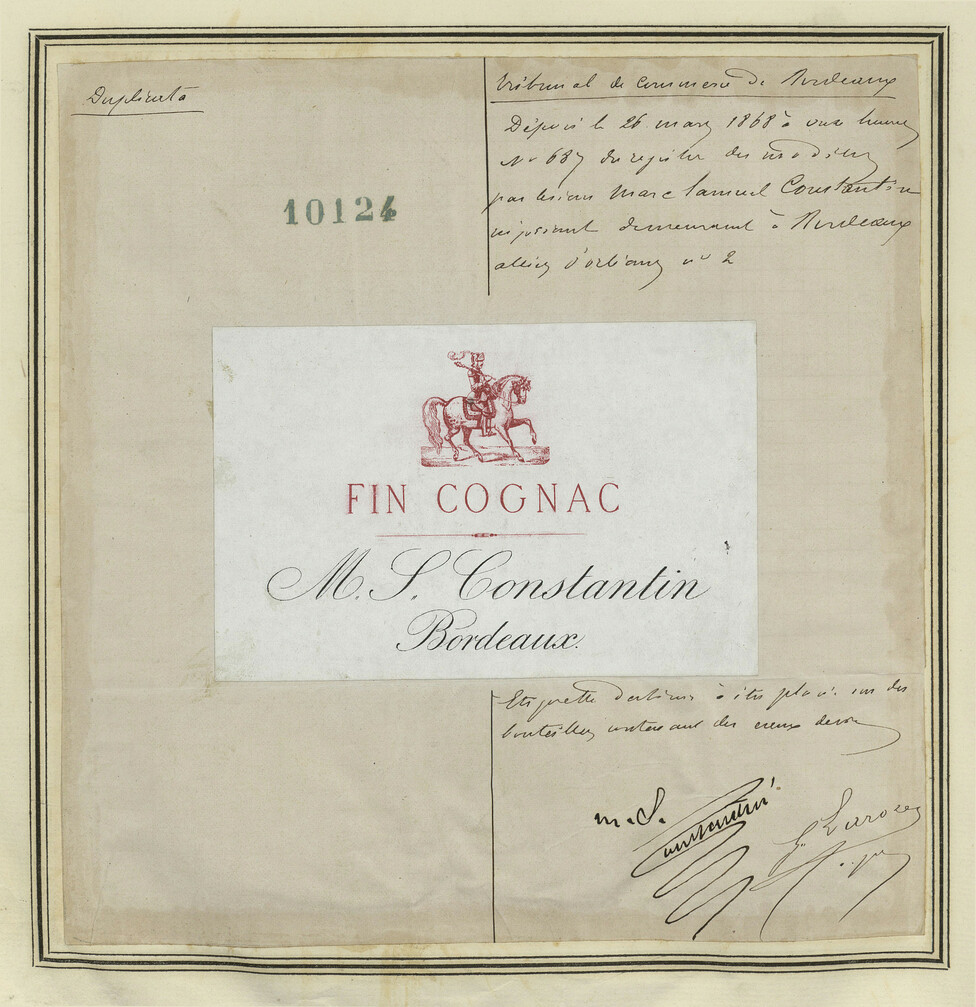 Duplicata
Tribunal de commerce de Bordeaux
Déposé le 26 mars 1868 à onze heures
No 687 du registre des modèles
par le sieur Marc Samuel Constantin
négociant demeurant à Bordeaux
allées d'orléans no 2
10124
FIN COGNAC
M. S. Constantin
Bordeaux.
Etiquette destinée à être placée sur des
bouteilles contenant des eaux de vie
M. S. Constantin